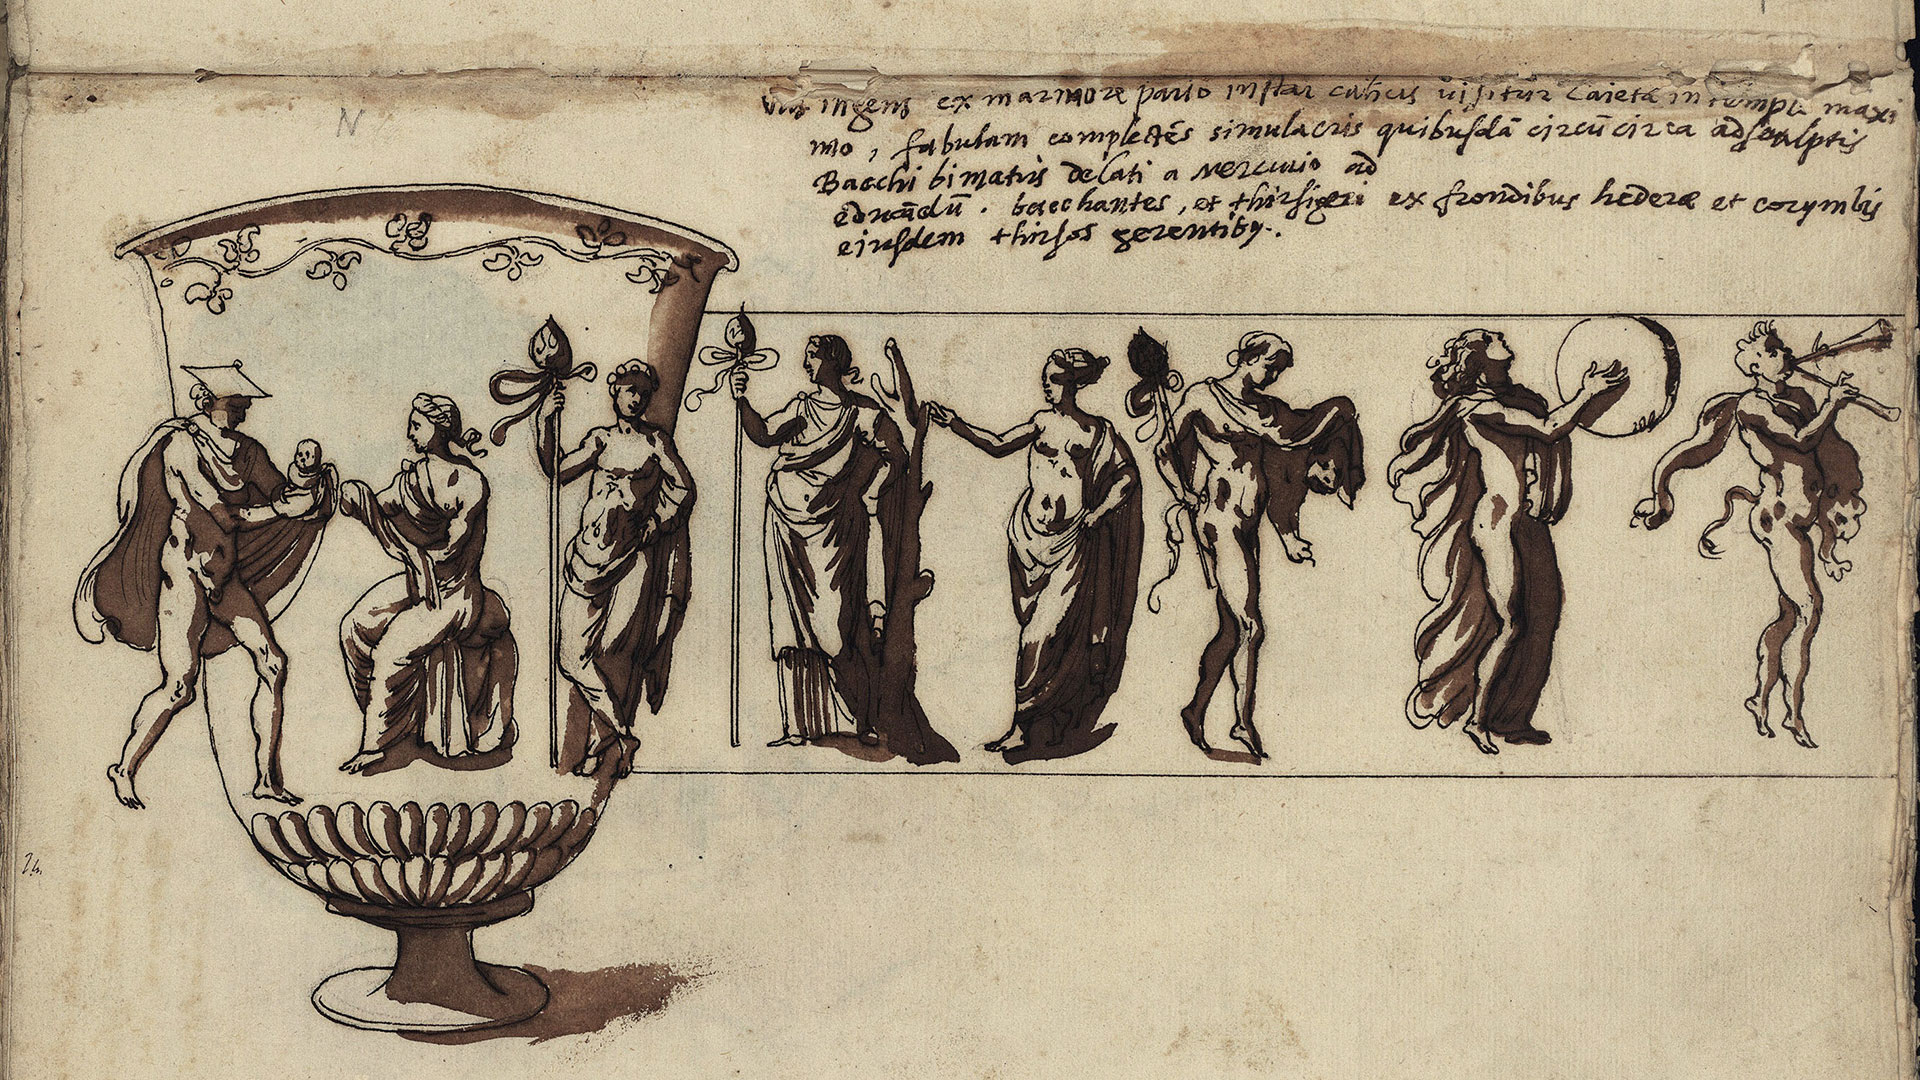 N
Vas ingens ex marmore pario instar calicis visitur Caietæ in templo maxi
mo, fabulam complectẽs simulacris quibusdã circũcirca adsculptis
Bacchi bimatris delati a Mercurio ad
educãdũ. bacchantes, et thirsigeri ex frondibus hederæ et corymbis
eiusdem thirsos gerentibus.
24.